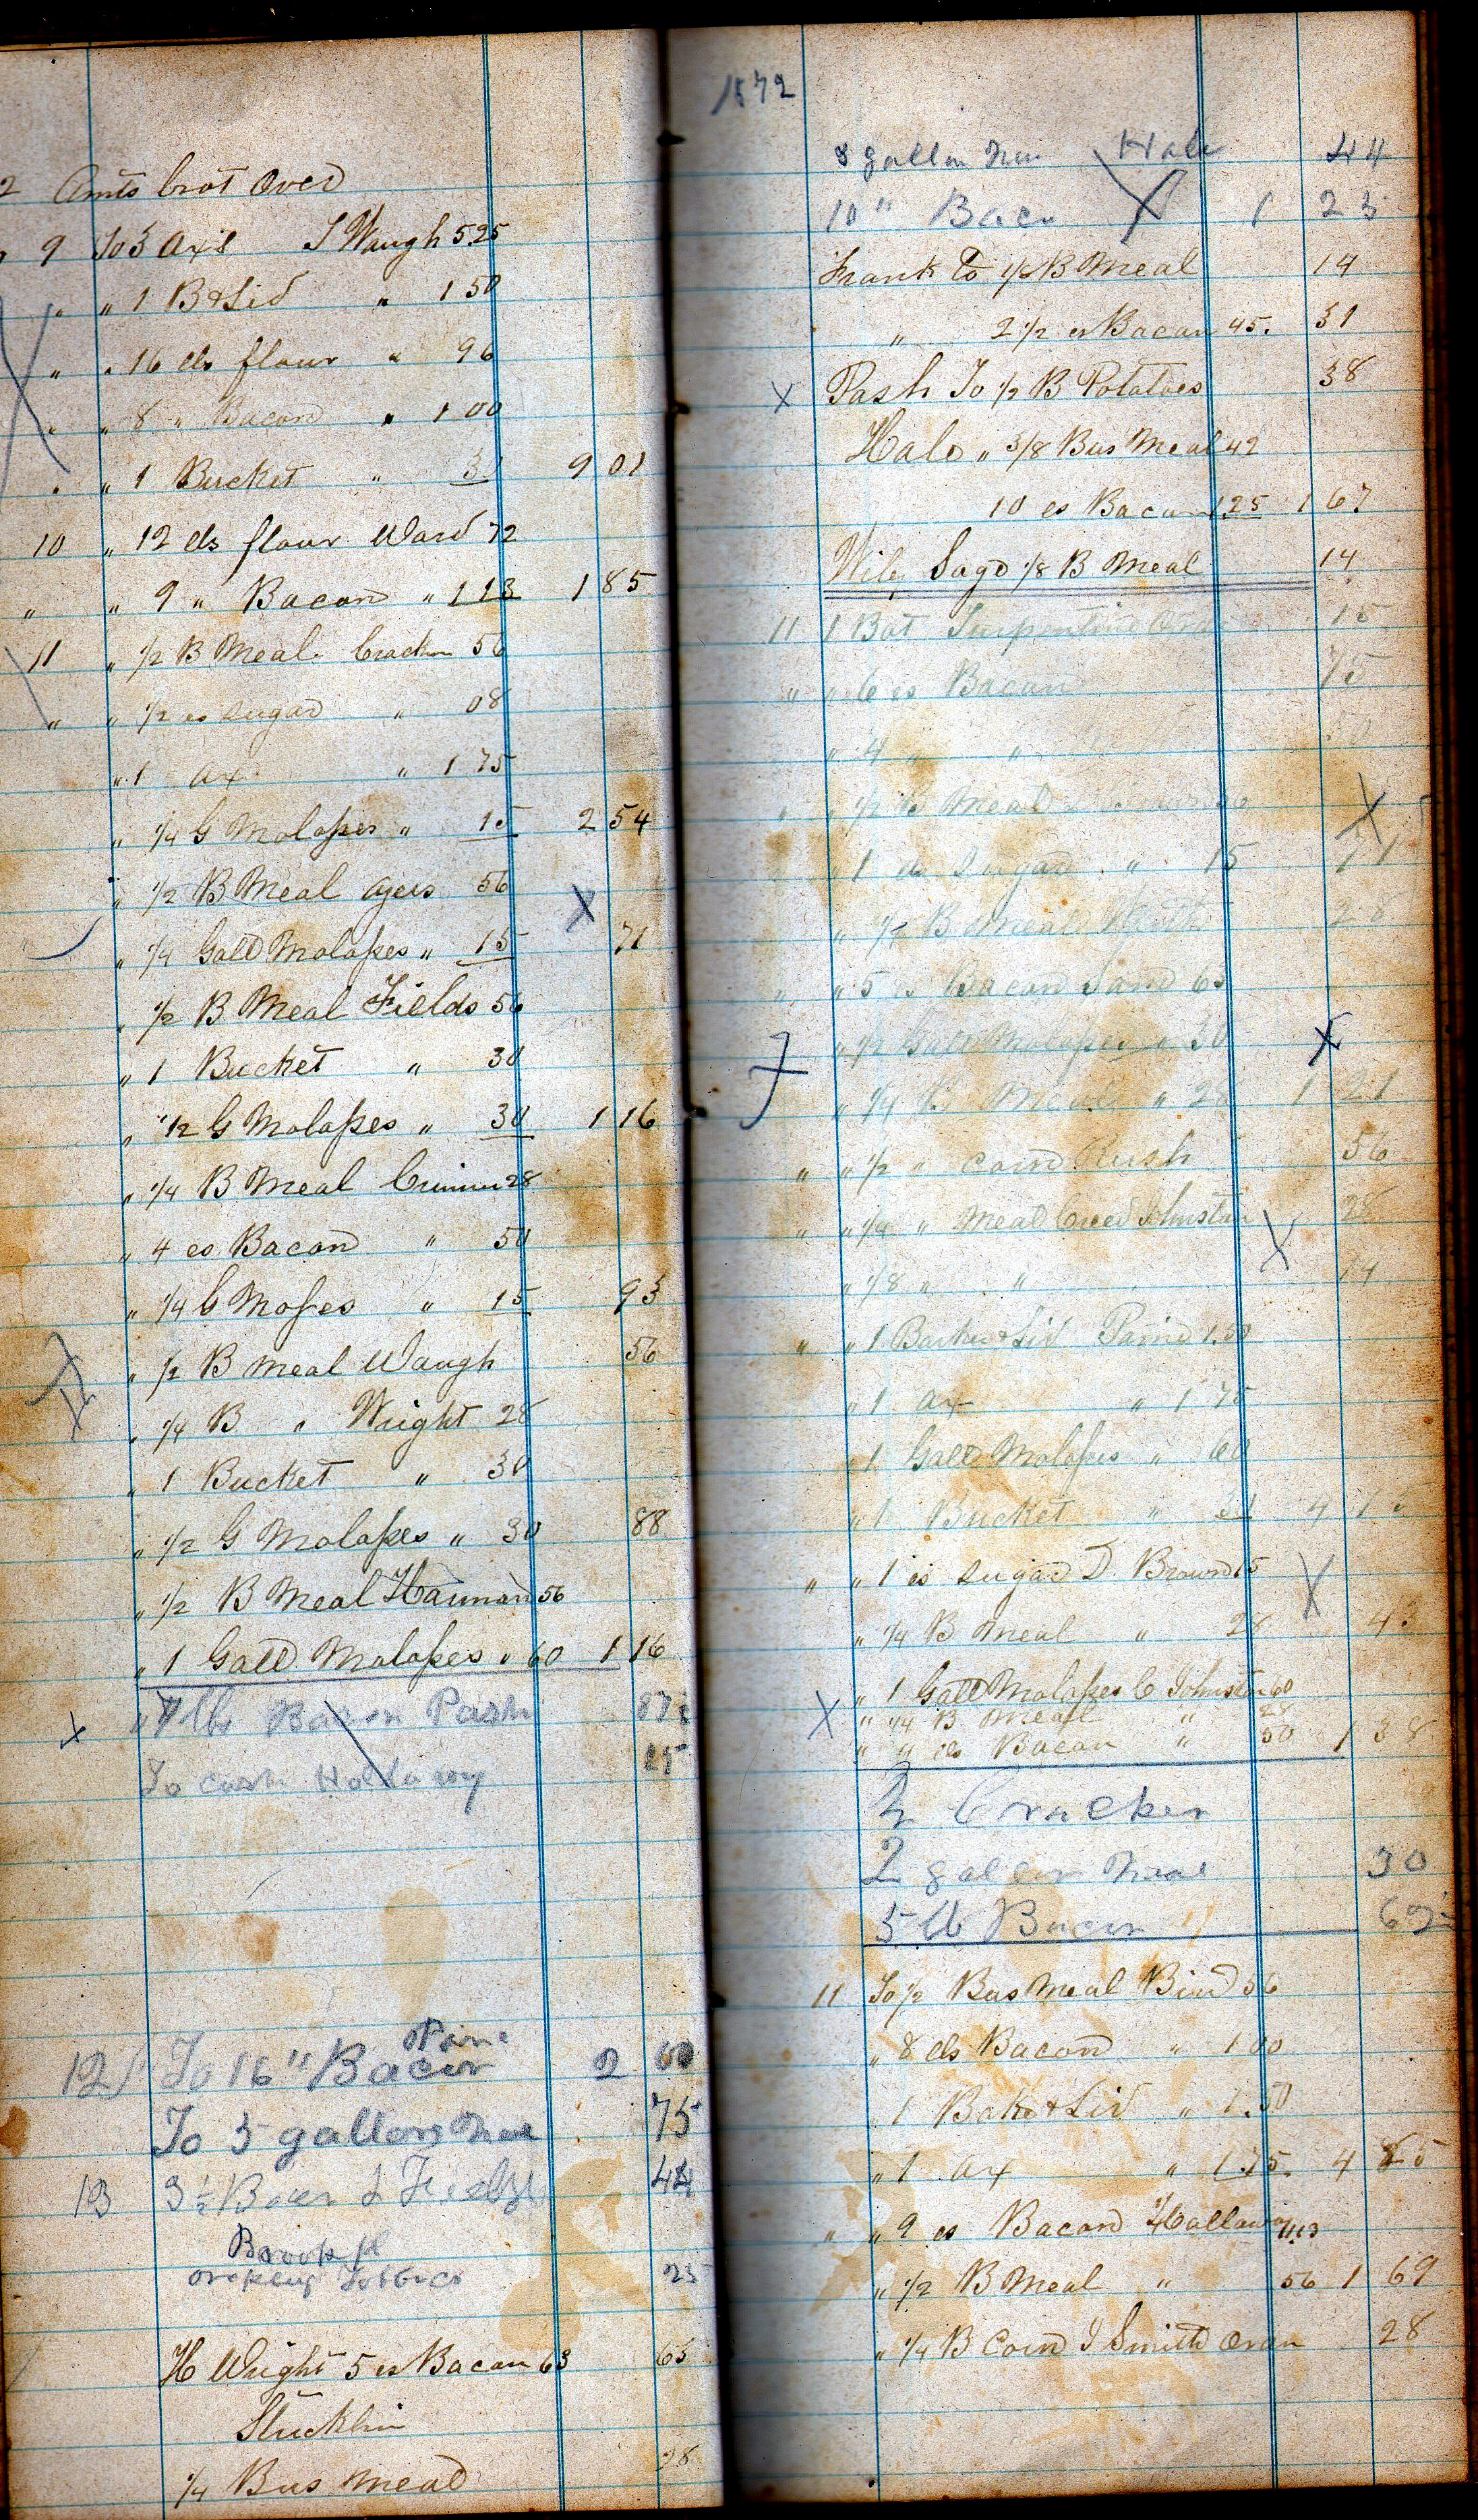 2 Amts brot Over
9 To 3 Axs J Waugh 5 25
" " 1 B & Lid " 1 50
" " 16 lbs flour " 96
" " 8 " Bacon " 1 00
" " 1 Bucket " 30 9 01
10 " 12 lbs flour Ward 72
" " 9 " Bacon " 1 13 1 85
11 " 1/2 B Meal 56
" " 1/2 lb sugar " 08
" 1 ax " 1 75
" 1/4 G Molasses " 15 2 54
" 1/2 B Meal Ayers 56 X
" 1/4 Gall Molasses " 15 71
" 1/2 B Meal Fields 56
" 1 Bucket " 30
" 1/2 G Molasses " 30 1 16
" 1/4 B Meal 28
" 4 lbs Bacon " 50
" 1/4 G " 15 93
" 1/2 B Meal Waugh 56
" 1/4 B " Wright 28
" 1 Bucket " 30
" 1/2 G Molasses " 30 88
" 1/2 B Meal Harman 56
" 1 Gall Molasses " 60 1 16
X " 7 lbs Bacon Pash 87
To cash Holloway 25
Paine
12 To 16 " Bacon 2 00
To 5 gallons Meal 75
13 3 1/2 Bacon 44
Tobbaco 25
H Wright 5 lbs Bacon 63 63
1/4 Bus Meal 28
1872
gallon Hale 44
10 " Bacon X 1 25
Frank To 1/8 B Meal 14
" 2 1/2 lbs Bacon 45. 31
X Pash To 1/2 B Potatoes 38
Hale " 3/8 Bus Meal 42
10 lbs Bacon 1 25 1 67
Wiley 1/8 B Meal 14
11 1 Bot Turpentine 15
" " 6 lbs Bacon 75
" 4 " " 50
" " 1/2 B Meal X
1 lb Sugar " 15 71
" 1/4 B Meal 28
" " 5 lbs Bacon Sand 63
" 1/2 Gall Molasses " 30 X
" 1/4 B Meal " 28 1 21
" " 1/2 " corn Rush 56
" " 1/4 " Meal Creed Johnston 28
" 1/8 " " X 14
" " 1 & Lid Paine 1.50
" 1 ax " 1 75
" 1 Gall Molasses " 60
" 1 Bucket " 30 4 15
" " 1 lb sugar D. Brown 15 X
" 1/4 B Meal " 28 43
X " 1 Gall Molasses C Johnston 60
" 1/4 B Meal " 28
" 4 lbs Bacon " 50 1 38
Cracker
2 gallon Meal 30
5 lb Bacon 62
11 To 1/2 Bus Meal Bird 56
" 8 lbs Bacon " 1 00
" 1 & Lid " 1.50
" 1 ax " 1.75. 4 85
" " 9 lbs Bacon Hallaway 1 13
" 1/2 B Meal " 56 1 69
" 1/4 B Corn J Smith 28